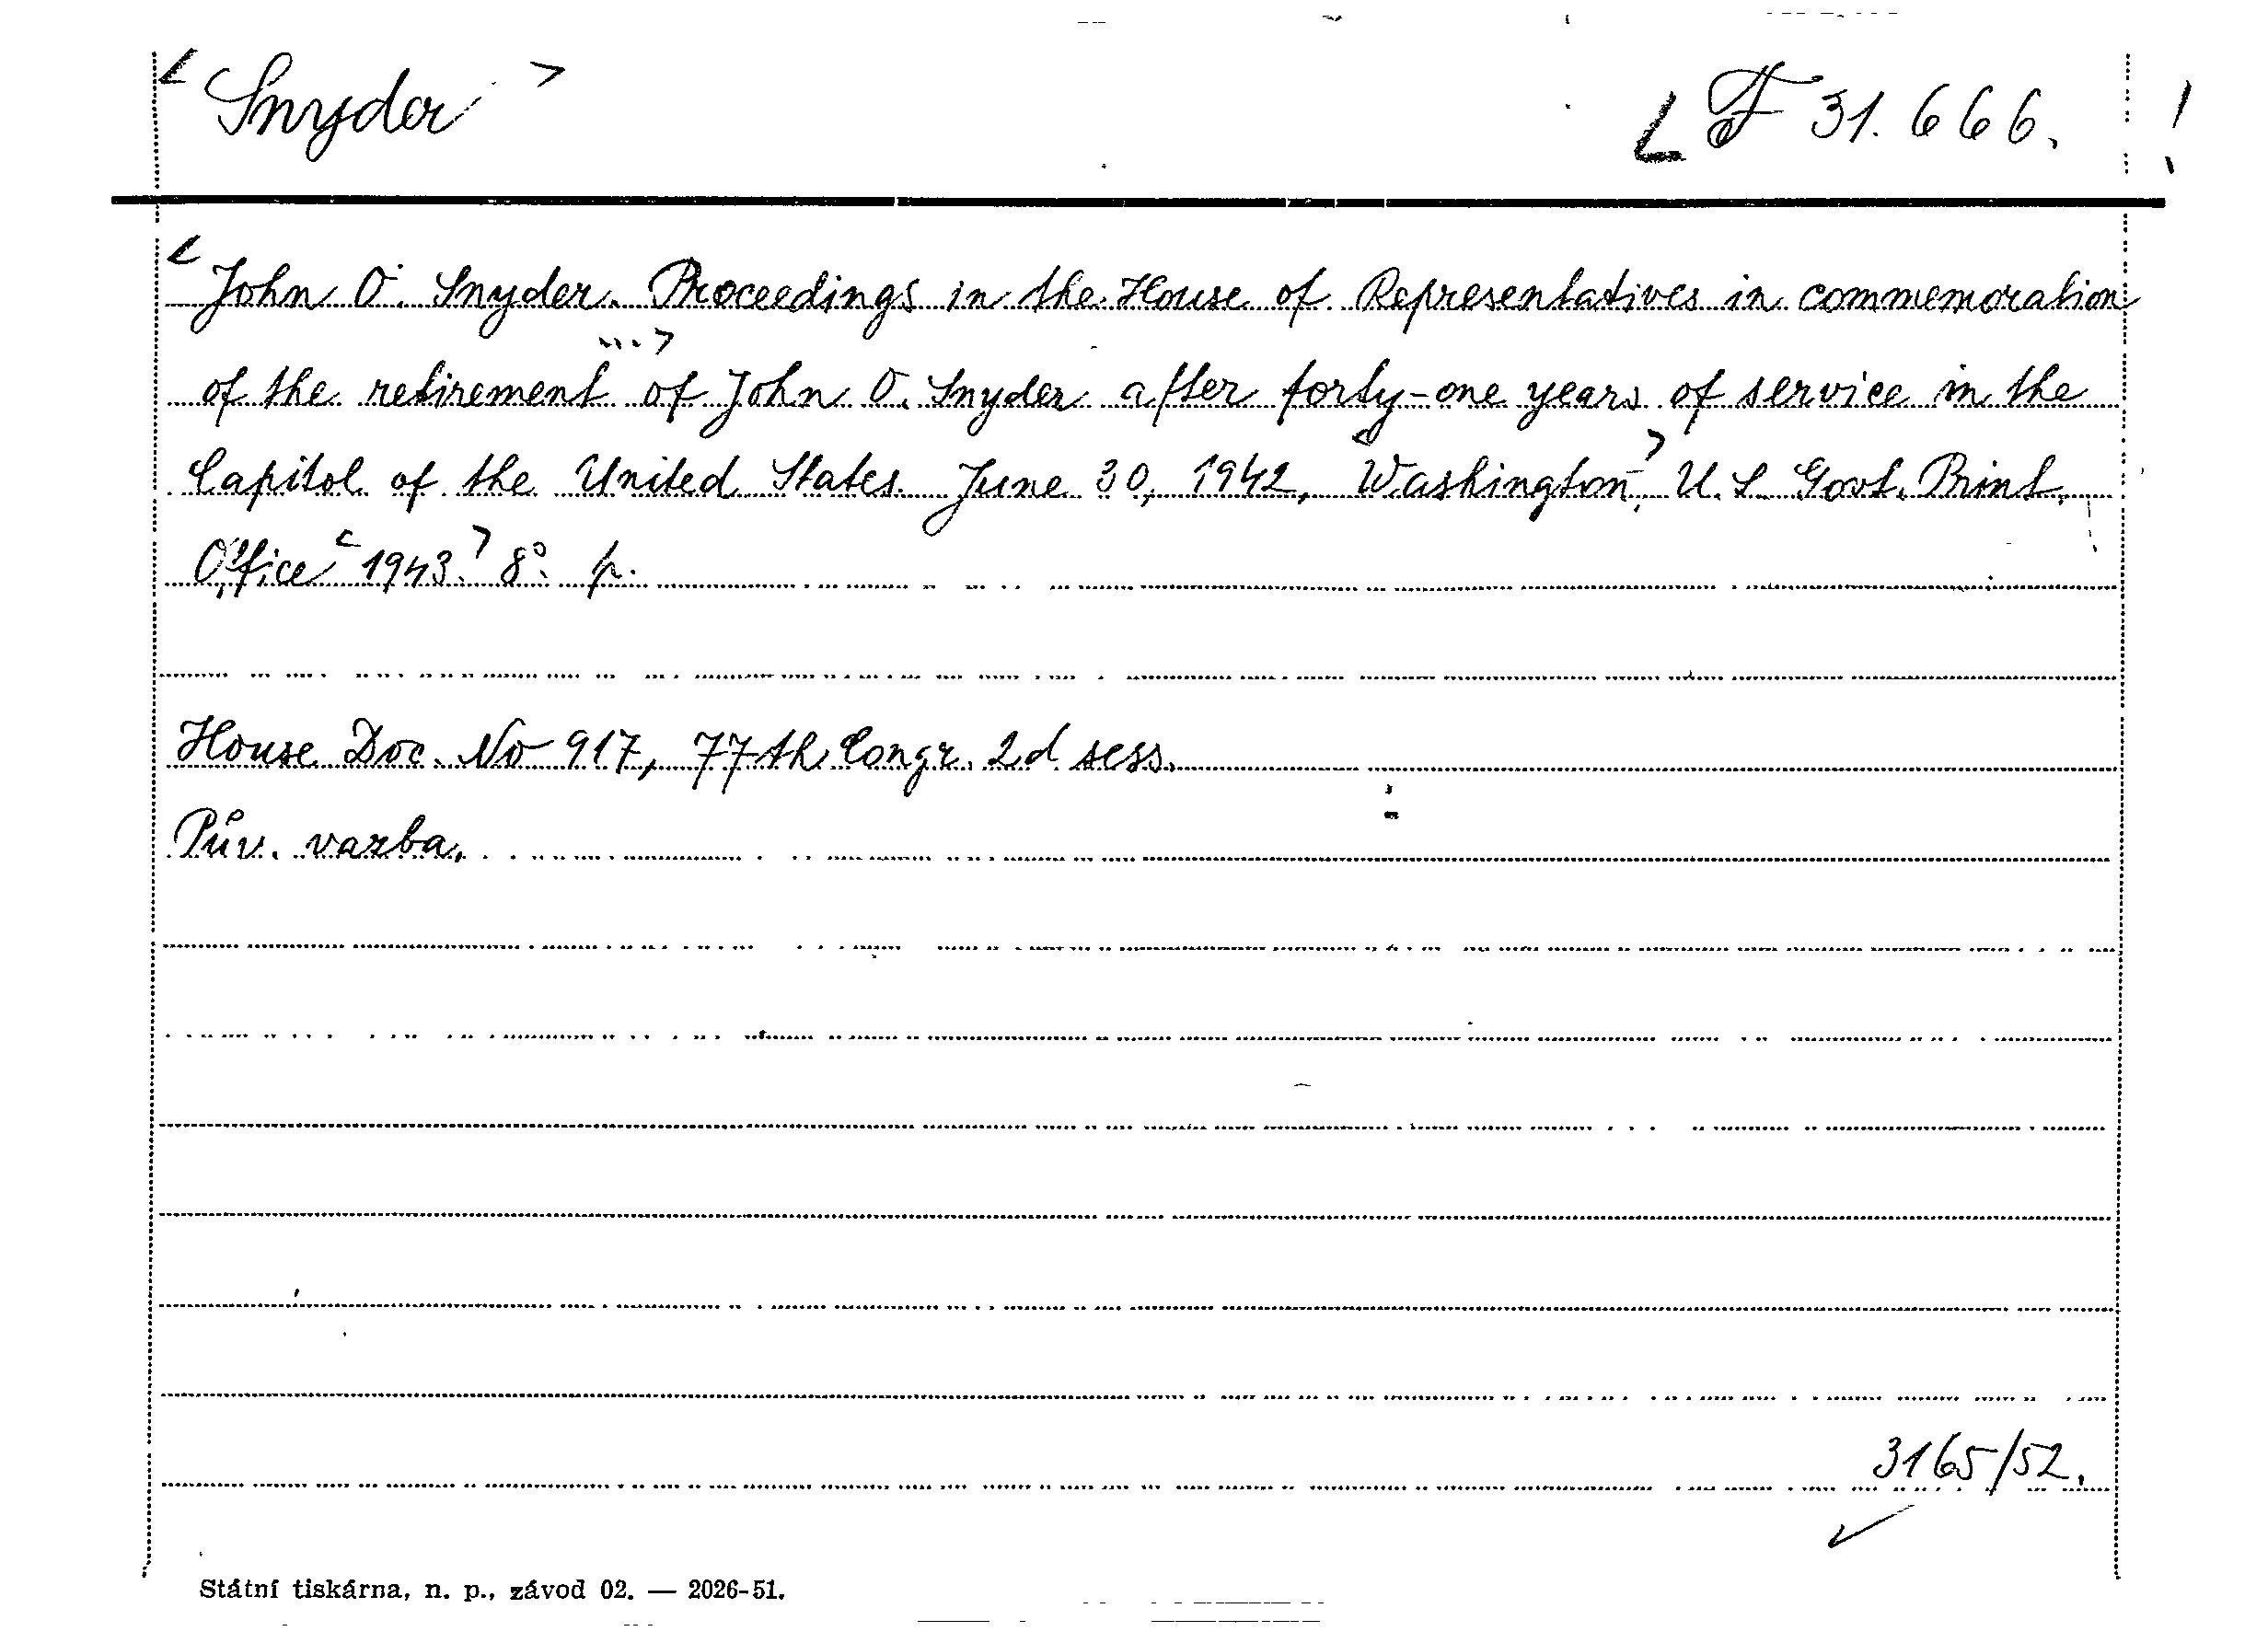 < Snyder > < F 31.666. !
< John O. Snyder. Proceedings in the House of Representatives in commemoration
of the retirement ...> of John O. Snyder after forty-one years of service in the
Capitol of the United States. June 30, 1942, < Washington, > U. S. Govt. Print.
Office < 1943. > 8°. p.
House Doc. No 917, 77th Congr. 2d sess.
Pův. vazba.
3165/52.
Státní tiskárna, n. p., závod 02. — 2026-51.